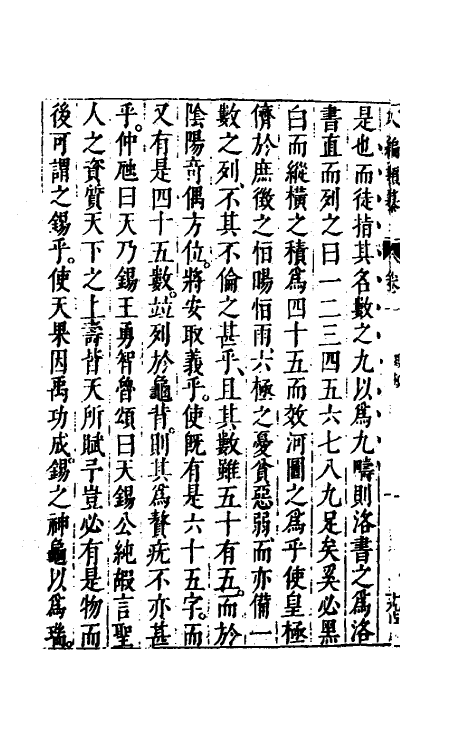 八編類纂
卷一
是也而徒指其名數之九以爲九疇則洛書之爲洛
書直而列之曰一二三四五六七八九足矣奚必黑
白而縱橫之積爲四十五而效河圖之爲乎使皇極
儕於庶徵之恒暘恒雨六極之憂貧惡弱而亦備一
數之列不其不倫之甚乎、且其數雖五十有五。而於
陰陽竒偶方位。將安取義乎。使旣有是六十五字。而
又有是四十五數。竝列於龜背。則其爲贅疣不亦甚
乎。仲虺曰天乃錫王勇智魯頌曰天錫公純嘏言聖
人之資質天下之上壽皆天所賦予豈必有是物而
後可謂之錫乎。使天果因禹功成。錫之神龜以爲瑞。